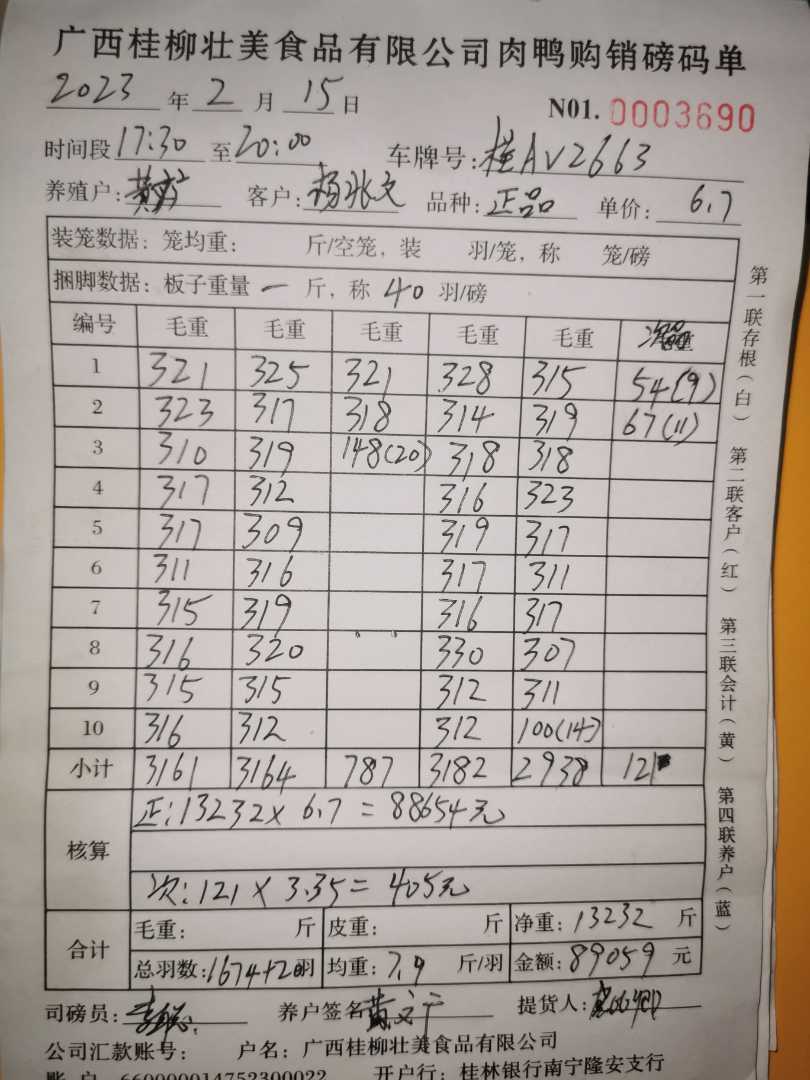 广西桂柳壮美食品有限公司肉鸭购销磅码单
2023 年 2 月 15 日 N01. 0003690
时间段 17:30 至 20:00 车牌号: 桂AV2663
养殖户: 客户: 杨张文 品种: 正品 单价: 6.7
装笼数据: 笼均重: 斤/空笼, 装 羽/笼, 称 笼/磅
捆脚数据: 板子重量 一 斤, 称 40 羽/磅
编号 毛重 毛重 毛重 毛重 毛重
1 321 325 321 328 315 54(9)
2 323 317 318 314 319 67(11)
3 310 319 148(20) 318 318
4 317 312 316 323
5 317 309 319 317
6 311 316 317 311
7 315 319 316 317
8 316 320 330 307
9 315 315 312 311
10 316 312 312 100(14)
小计 3161 3164 787 3182 2938 121
核算
正: 13232 x 6.7 = 88654元
次: 121 x 3.35 = 405元
合计
毛重: 斤 皮重: 斤 净重: 13232 斤
总羽数: 1674+20羽 均重: 7.9 斤/羽 金额: 89059 元
司磅员: 养户签名 提货人:
公司汇款账号: 户名: 广西桂柳壮美食品有限公司
账 户 660000014752300022 开户行: 桂林银行南宁隆安支行
第一联存根(白)
第二联客户(红)
第三联会计(黄)
第四联养户(蓝)